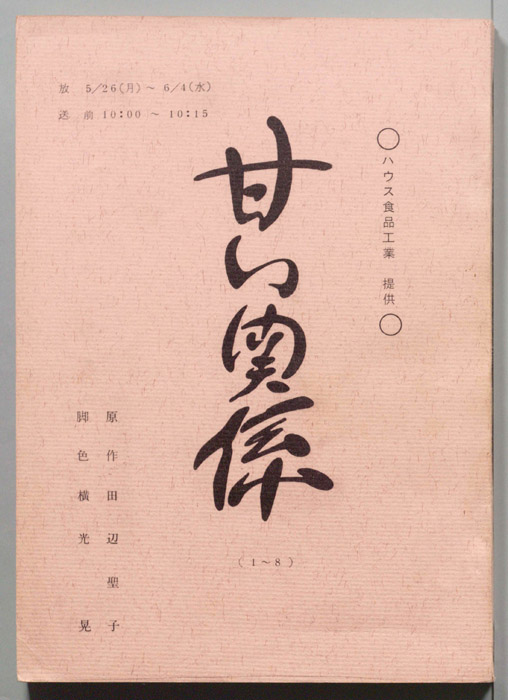 ○ハウス食品工業　提供○
甘い関係
（1～8）
放　5/26(月)～ 6/4(水)
送　前 10:00 ～ 10:15
原作田辺聖子
脚色横光晃